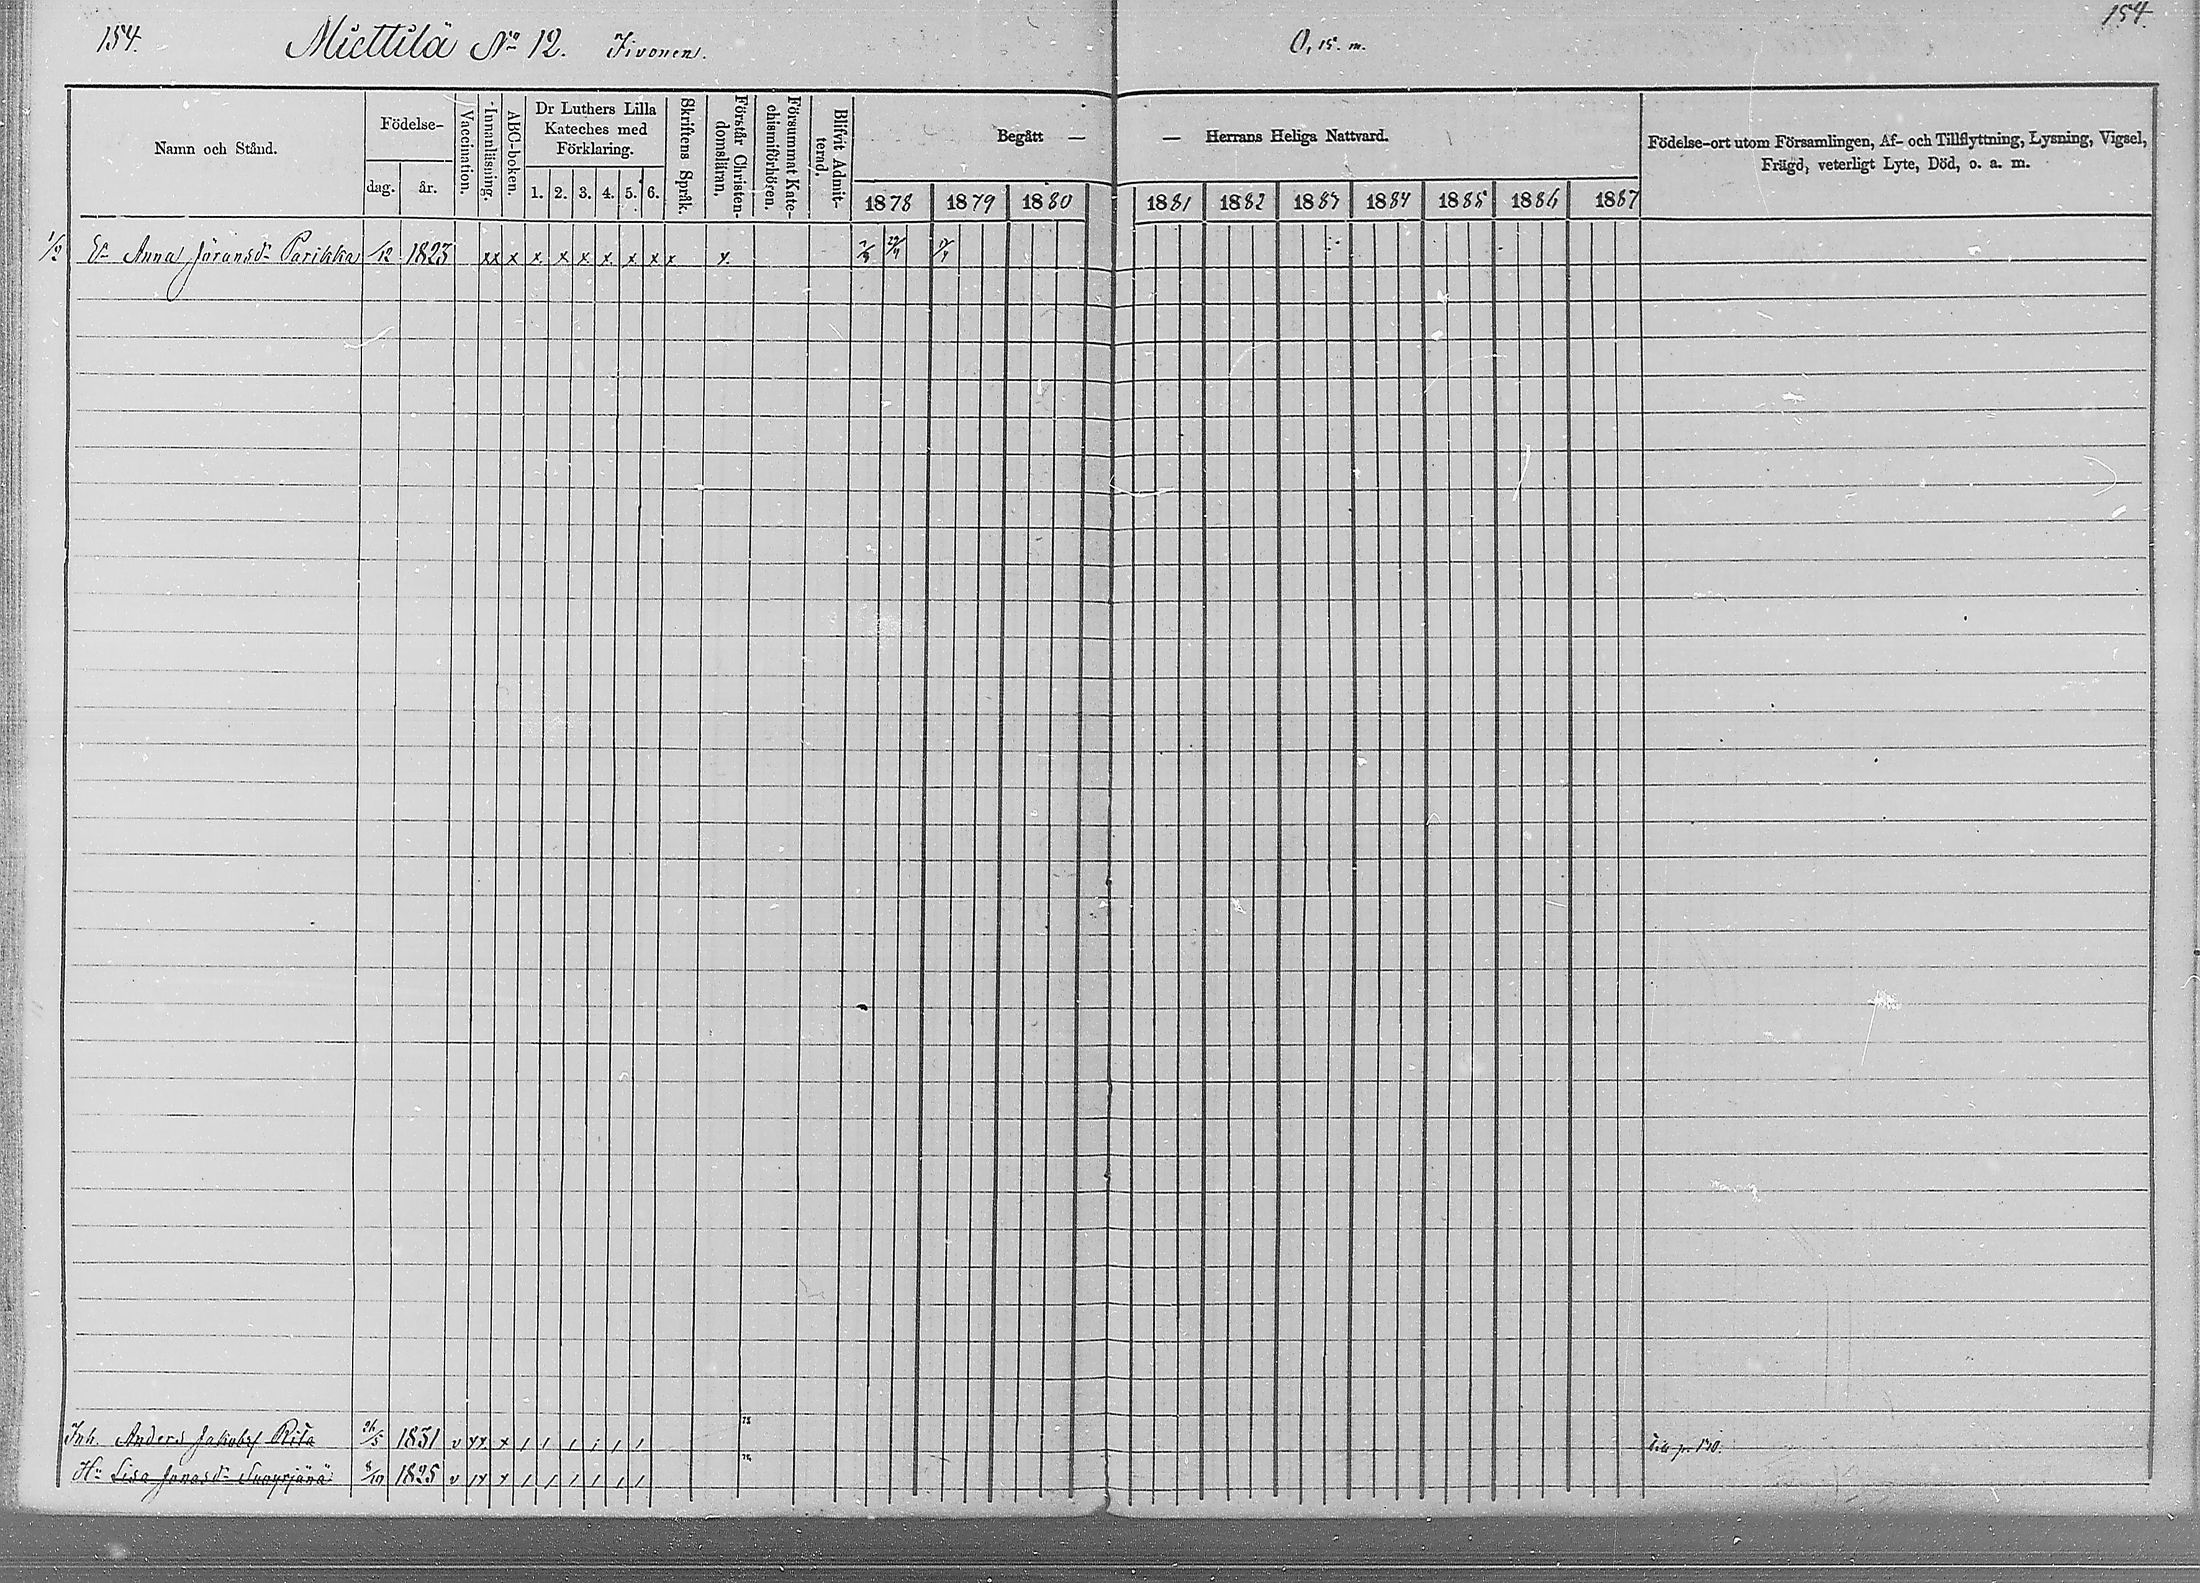 154.
Miettilä No 12. Jivonen.
0,15. m.
154.
Namn och Stånd.
Födelse-
dag.
år.
Vaccination.
Innanläsning.
ABC-boken.
Dr Luthers Lilla
Kateches med
Förklaring.
1. 2. 3. 4. 5. 6.
Skriftens Språk.
Förstår Christen-
domsläran.
Försummat Kate-
chismiförhören.
Blifvit Admit-
terad.
Begått —
— Herrans Heliga Nattvard.
1878 1879 1880 1881 1882 1883 1884 1885 1886 1887
Födelse-ort utom Församlingen, Af- och Tillflyttning, Lysning, Vigsel,
Frägd, veterligt Lyte, Död, o. a. m.
1/2 Anna Göransdr Parikka /12 1823 xx x x x x x x x x x
Inh. Anders Jakobss Rita 1831
Hu Lisa Jonasdr 1825